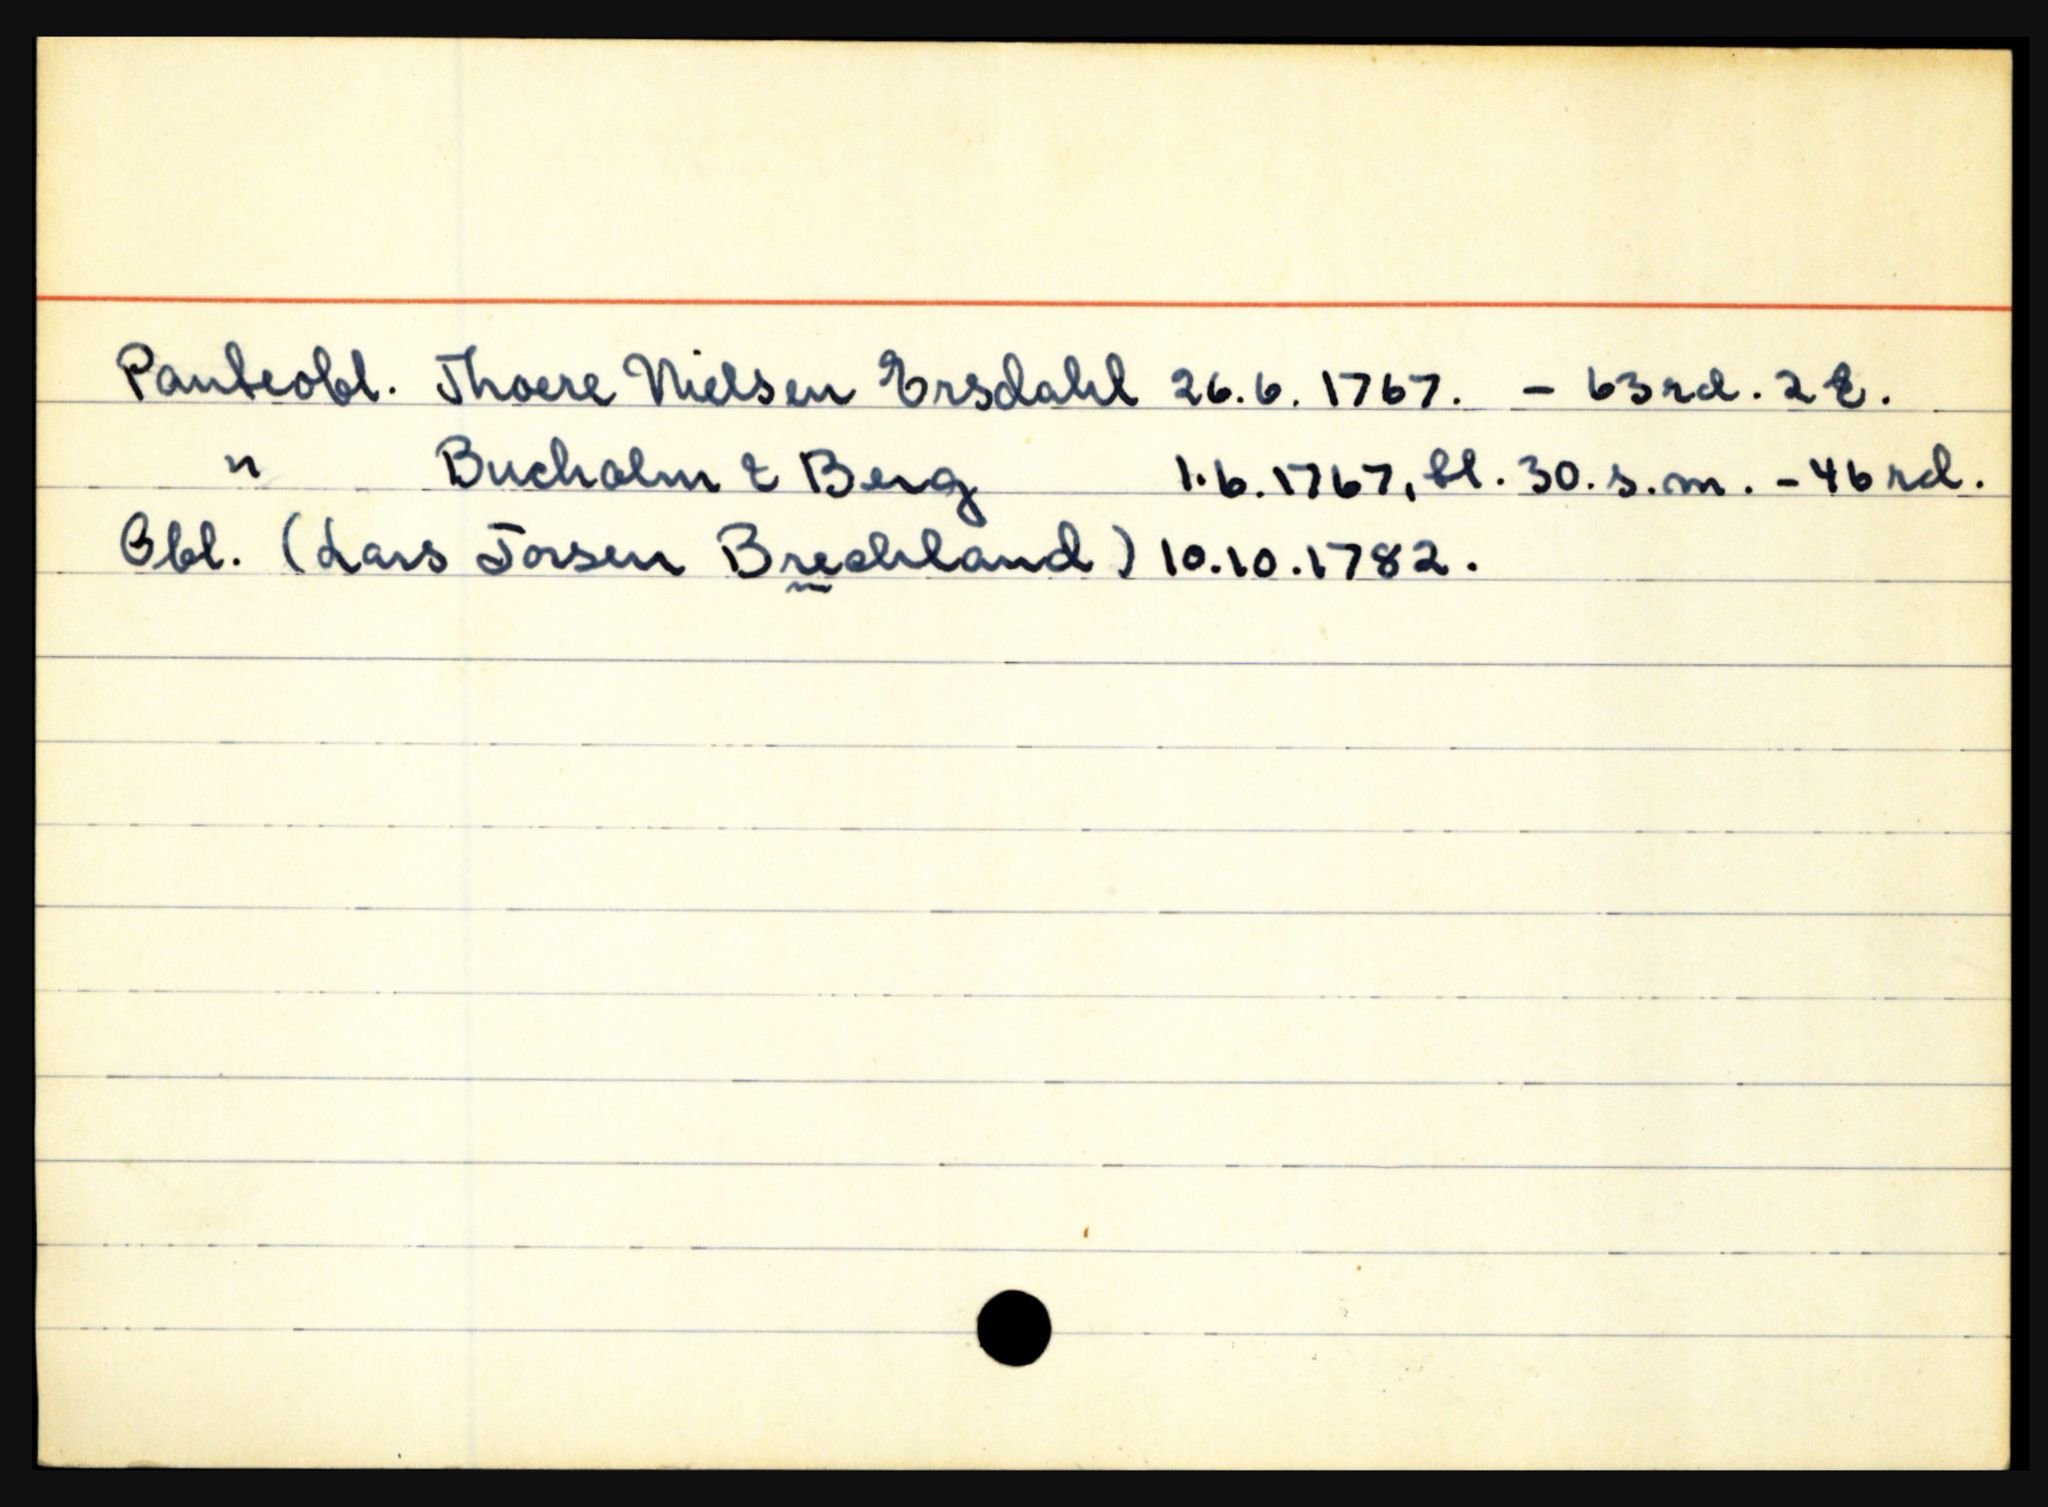 Panteobl. Thoere Nielsen Ersdahl 26.6. 1767. - 63 rd. 2 E.
" Bucholm & Berg 1.6.1767, bl. 30. s.m. - 46 rd.
Obl. (Lars Torsen Brechland) 10.10.1782.